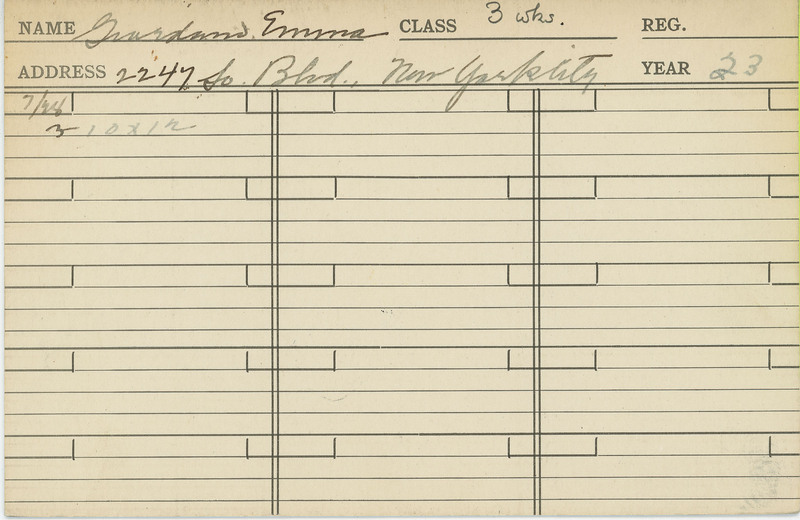 NAME Giordano, Emma CLASS 3 wks. REG.
ADDRESS 2247 So. Blvd., New York City YEAR 23
7/28
3 10 x 12